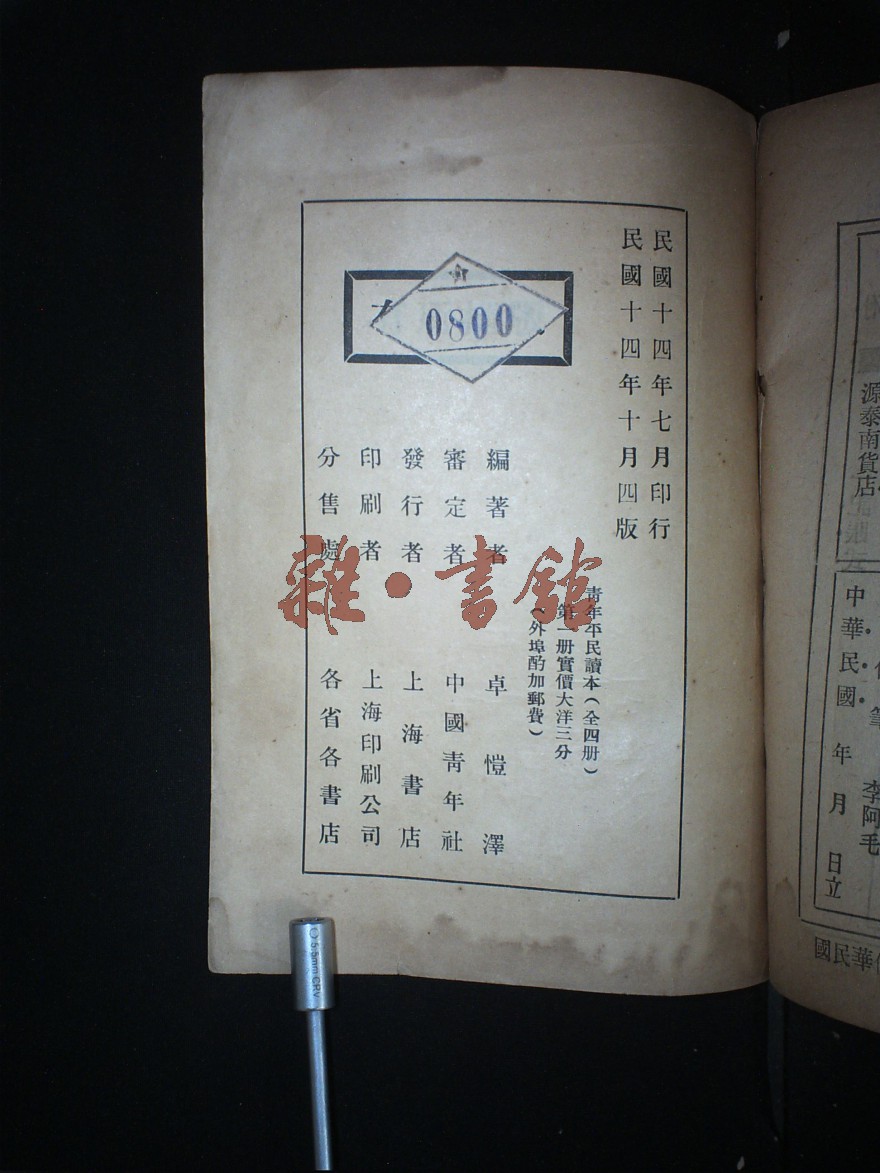 民國十四年七月印行
民國十四年十月四版
青年平民讀本(全四册)
第一册實價大洋三分
(外埠酌加郵費)
編著者 卓愷澤
審定者 中國青年社
發行者 上海書店
印刷者 上海印刷公司
分售處 各省各書店
0800
雜·書館
5.5mm CRV
源泰南貨店
中華民國 年 月 日立
李阿毛
國民華